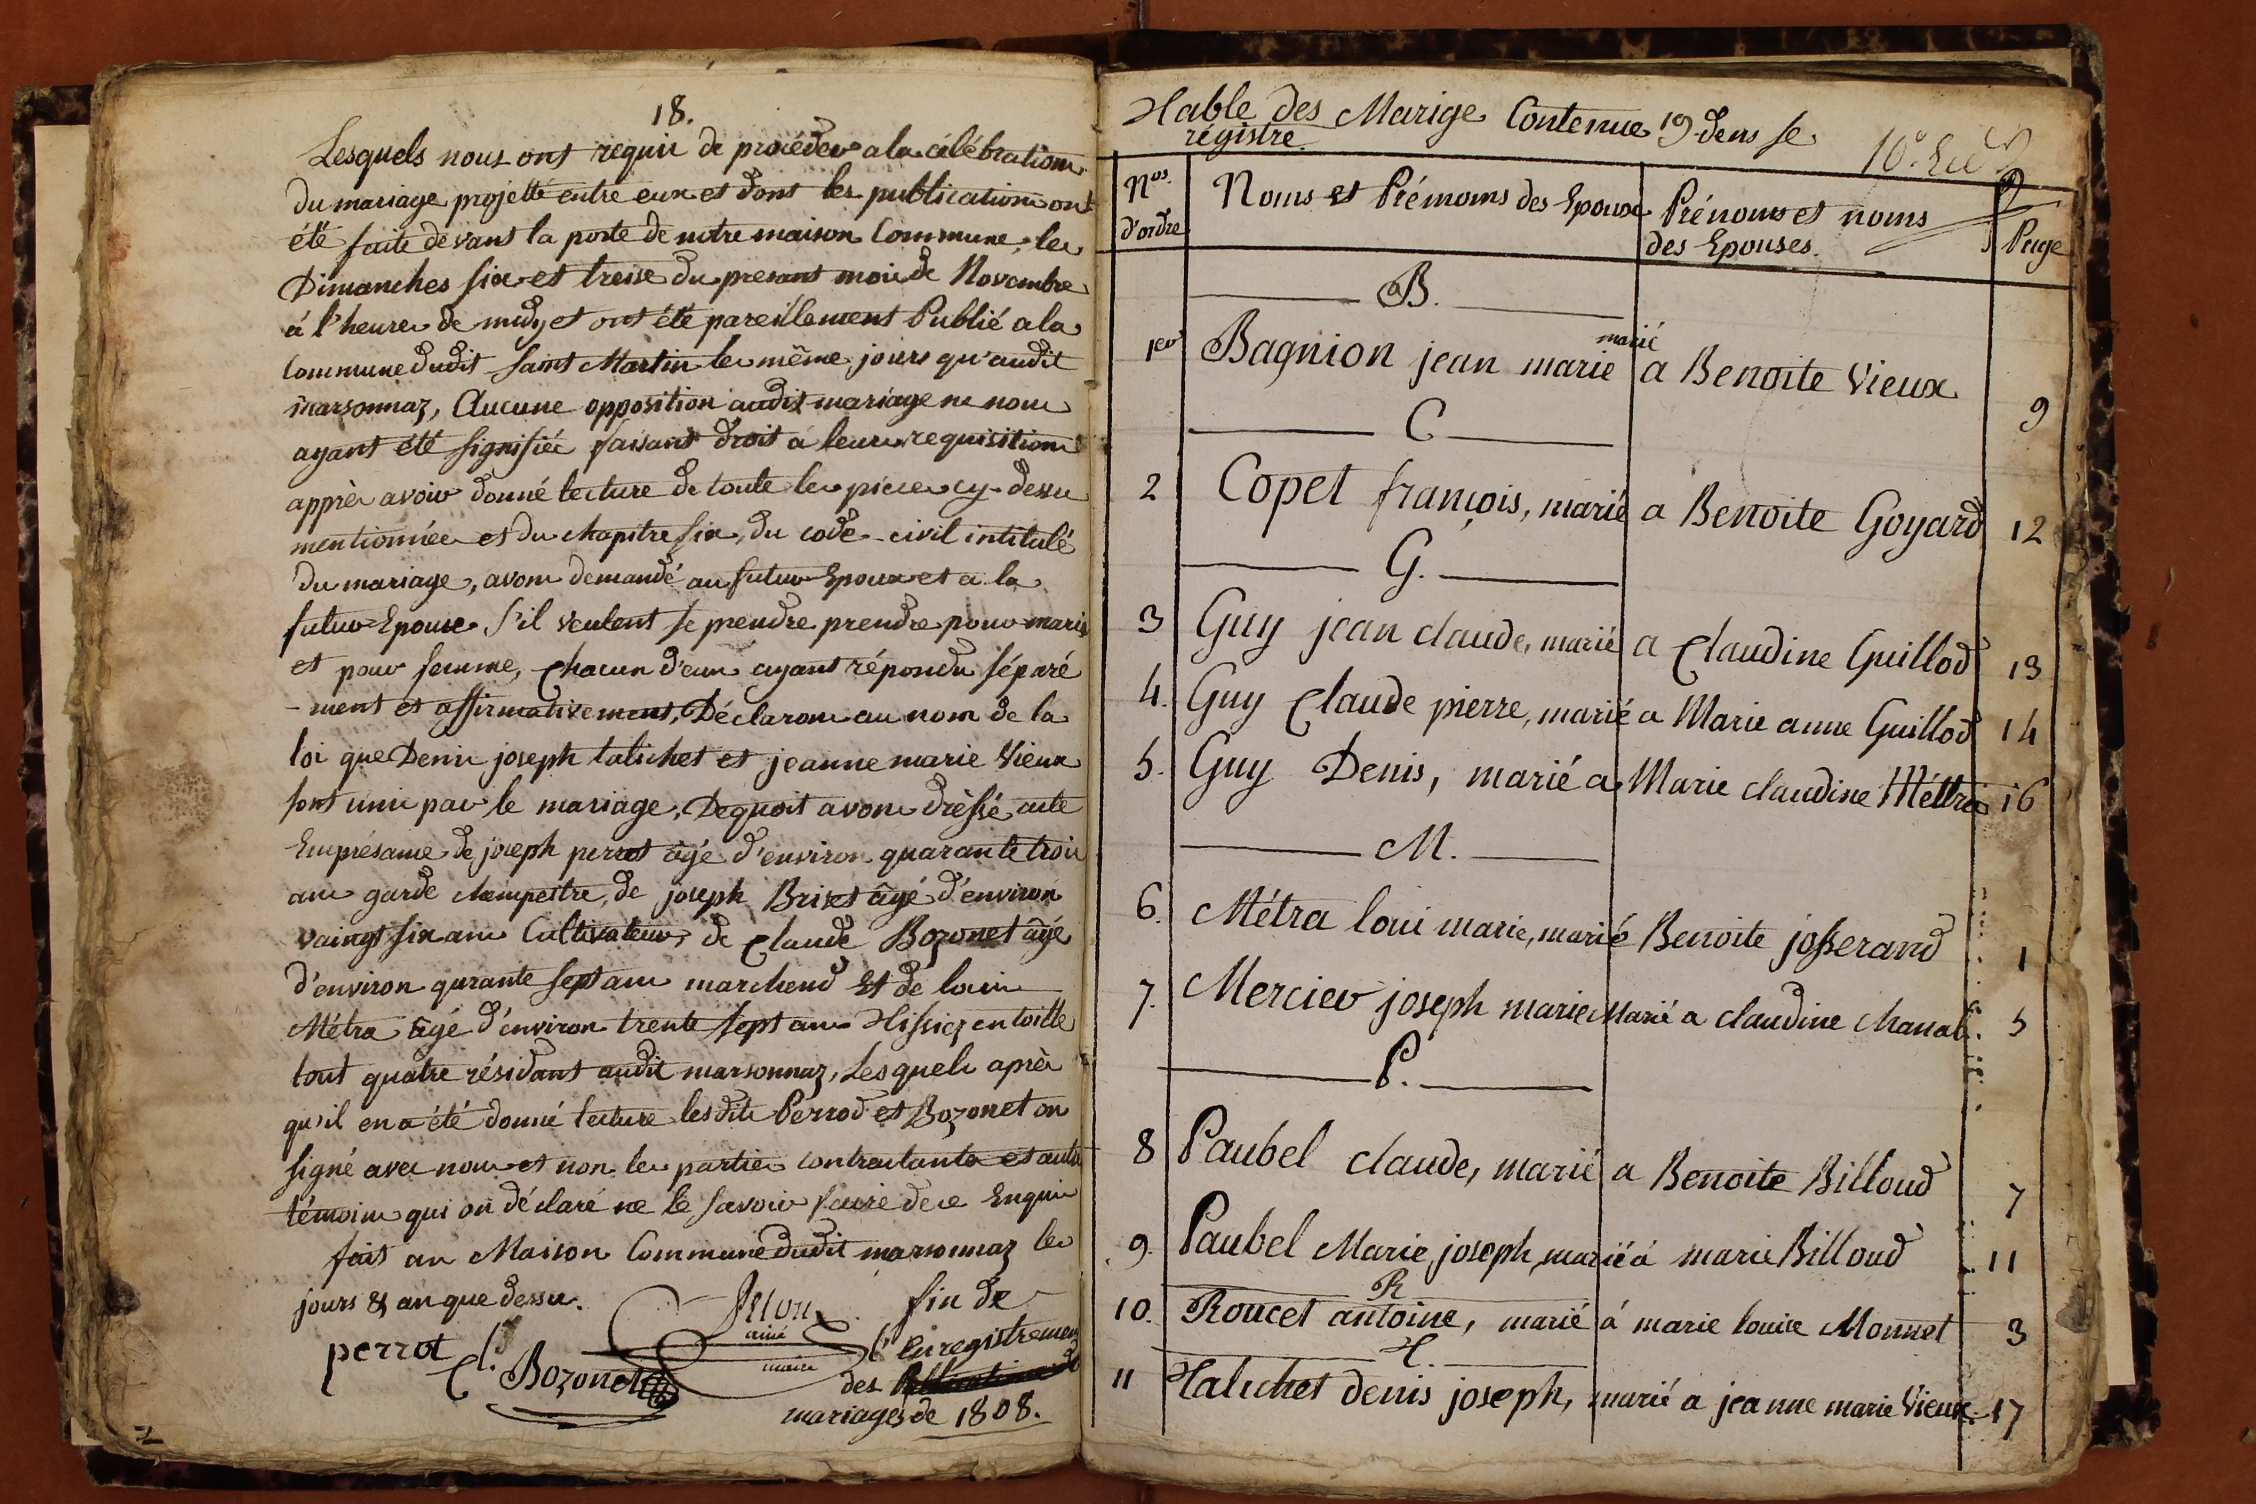 18.
Lesquels nous ont requis de procéder a la célébration
du mariage projetté entre eux et dont les publications ont
été faite devant la porte de notre maison Commune, les
Dimanches six et treise du presant mois de Novembre
á l'heure de midy et ont été pareillement Publié a la
Commune dudit Saint Martin les même jours qu'audit
marsonnaz, Aucune opposition audit mariage ne nous
ayant été signifiée faisant droit á leurs requisitions
apprès avoir donné lecture de toute les pieces cy-dessu
mentionnées et du chapitre six, du code civil intitulé
du mariage, avons demandé au futur Epoux et a la
futur Epouse s'il veulent se prendre prendre pour maris
et pour femme, chacun d'eux ayant répondu séparé
-ment et affirmativement, Déclarons au nom de la
loi que Denis joseph talichet et jeanne marie Vieux
sont unis par le mariage, Dequoit avons drèssé acte
Enprésance de joseph perrot âgé d'environ quarante trois
ans garde champeitre, de joseph Brivet âgé d'environ
vaingt six ans Cultivateur, de Claude Bozonet âgé
d'environ qurante sept ans marchend Et de louis
Métra âgé d'environ trente sept ans Tissiez en toille
tout quatre résidant audit marsonnaz, Lesquels après
qu'il en a été donné lecture lesdits Perrod et Bozonet on
signé avec nous et non les parties contractante et autre
témoins qui on déclaré ne le savoir faire de ce Enquis
fait an Maison Commune dudit marsonnaz les
jours & an que dessu.
perrot
Cl. Bozonet
ainé
maire
fin de
l'enregistrement
des
mariages de 1808.
Table des Marige Contenue 19 dens se
régistre.
Nos. d'ordre
Noms et Prémoms des Epoux
Prénoms et noms des Epouses.
Page
B.
1er Bagnion jean marie marié a Benoite Vieux 9
C
2 Copet françois, marié a Benoite Goyard 12
G.
3 Guy jean claude, marié a Claudine Guillod 13
4. Guy Claude pierre, marié a Marie anne Guillod 14
5. Guy Denis, marié a Marie claudine Méttra 16
M.
6. Métra loui marie, marié Benoite josserand 1
7. Mercier joseph marie Marié a claudine Chanal. 5
P.
8 Paubel claude, marié a Benoite Billoud 7
9. Paubel Marie joseph, marié á marie Billoud 11
R
10. Roucet antoine, marié á marie louise Monnet 3
T.
11 Talichet denis joseph, marié a jeanne marie Vieux 17